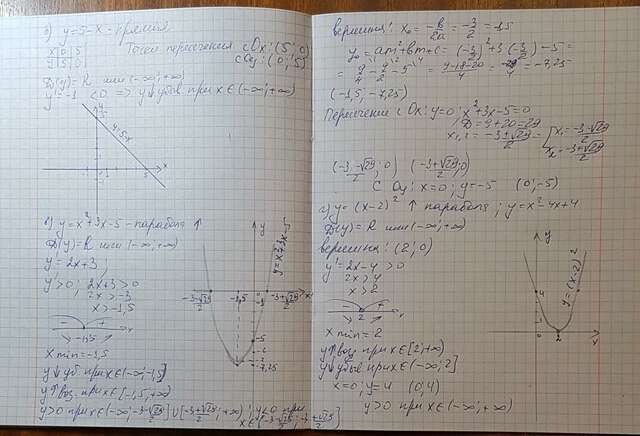 б) y = 5 - x - прямая
x | 0 | 5
y | 5 | 0
Точки пересечения с Ox: (5; 0)
с Oy: (0; 5)
D(y) = R или (-∞; +∞)
y' = -1 < 0 => y↓ убыв при x ∈ (-∞; +∞)
y
5
4=5-x
5
x
в) y = x² + 3x - 5 - парабола ↑
D(y) = R или (-∞; +∞)
y' = 2x + 3;
y' > 0; 2x + 3 > 0
2x > -3
x > -1,5
- +
-1,5
x
x min = -1,5
y↓ уб при x ∈ (-∞; -1,5]
y↑ воз при x ∈ [-1,5; +∞)
y > 0 при x ∈ (-∞; -3-√29/2] ∪ [-3+√29/2; +∞); y < 0 при
x ∈ [-3-√29/2; -3+√29/2]
y
y = x² + 3x - 5
-3-√29/2
-1,5
-3+√29/2
x
-5
-7,25
вершина: x₀ = -b/2a = -3/2 = -1,5
y₀ = am² + bm + c = (-3/2)² + 3(-3/2) - 5 =
= 9/4 - 9/2 - 5 = 9-18-20/4 = -29/4 = -7,25
(-1,5; -7,25)
Пересечение с Ox: y = 0; x² + 3x - 5 = 0
D = 9 + 20 = 29
x₁,₂ = -3±√29/2 =
x₁ = -3-√29/2
x₂ = -3+√29/2
(-3-√29/2; 0) (-3+√29/2; 0)
с Oy: x = 0; y = -5 (0; -5)
г) y = (x - 2)² ↑ парабола; y = x² - 4x + 4
D(y) = R или (-∞; +∞)
вершина: (2; 0)
y' = 2x - 4 > 0
2x > 4
x > 2
- +
2
x
x min = 2
y↑ воз при x ∈ [2; +∞)
y↓ убыв при x ∈ (-∞; 2]
x = 0; y = 4 (0; 4)
y > 0 при x ∈ (-∞; +∞)
y
y = (x - 2)²
0
2
x